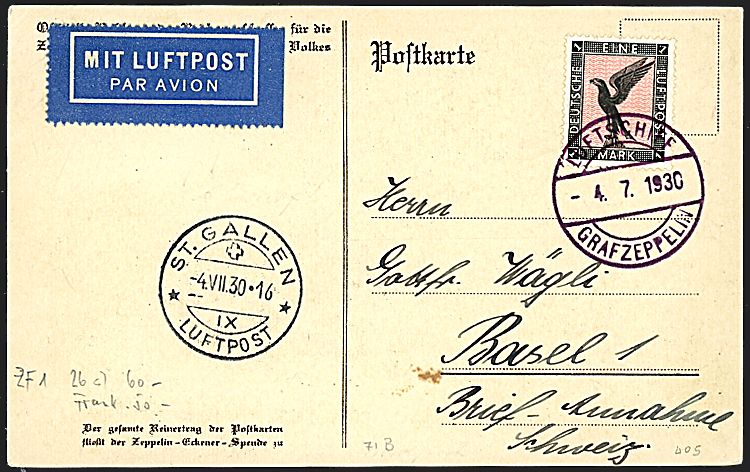 für die
Volkes
MIT LUFTPOST
PAR AVION
Postkarte
DEUTSCHE
EINE
LUFTPOST
MARK
LUFTSCHIFF
- 4. 7. 1930
GRAFZEPPELIN
Herrn
Gottfr. Wägli
Basel 1
Brief-Annahme
Schweiz.
ST. GALLEN
-4.VII.30•16
IX
LUFTPOST
ZF1 26a) 60-
Frank. 50.-
Der gesamte Reinertrag der Postkarten
fließt der Zeppelin-Eckener-Spende zu
71,B
405